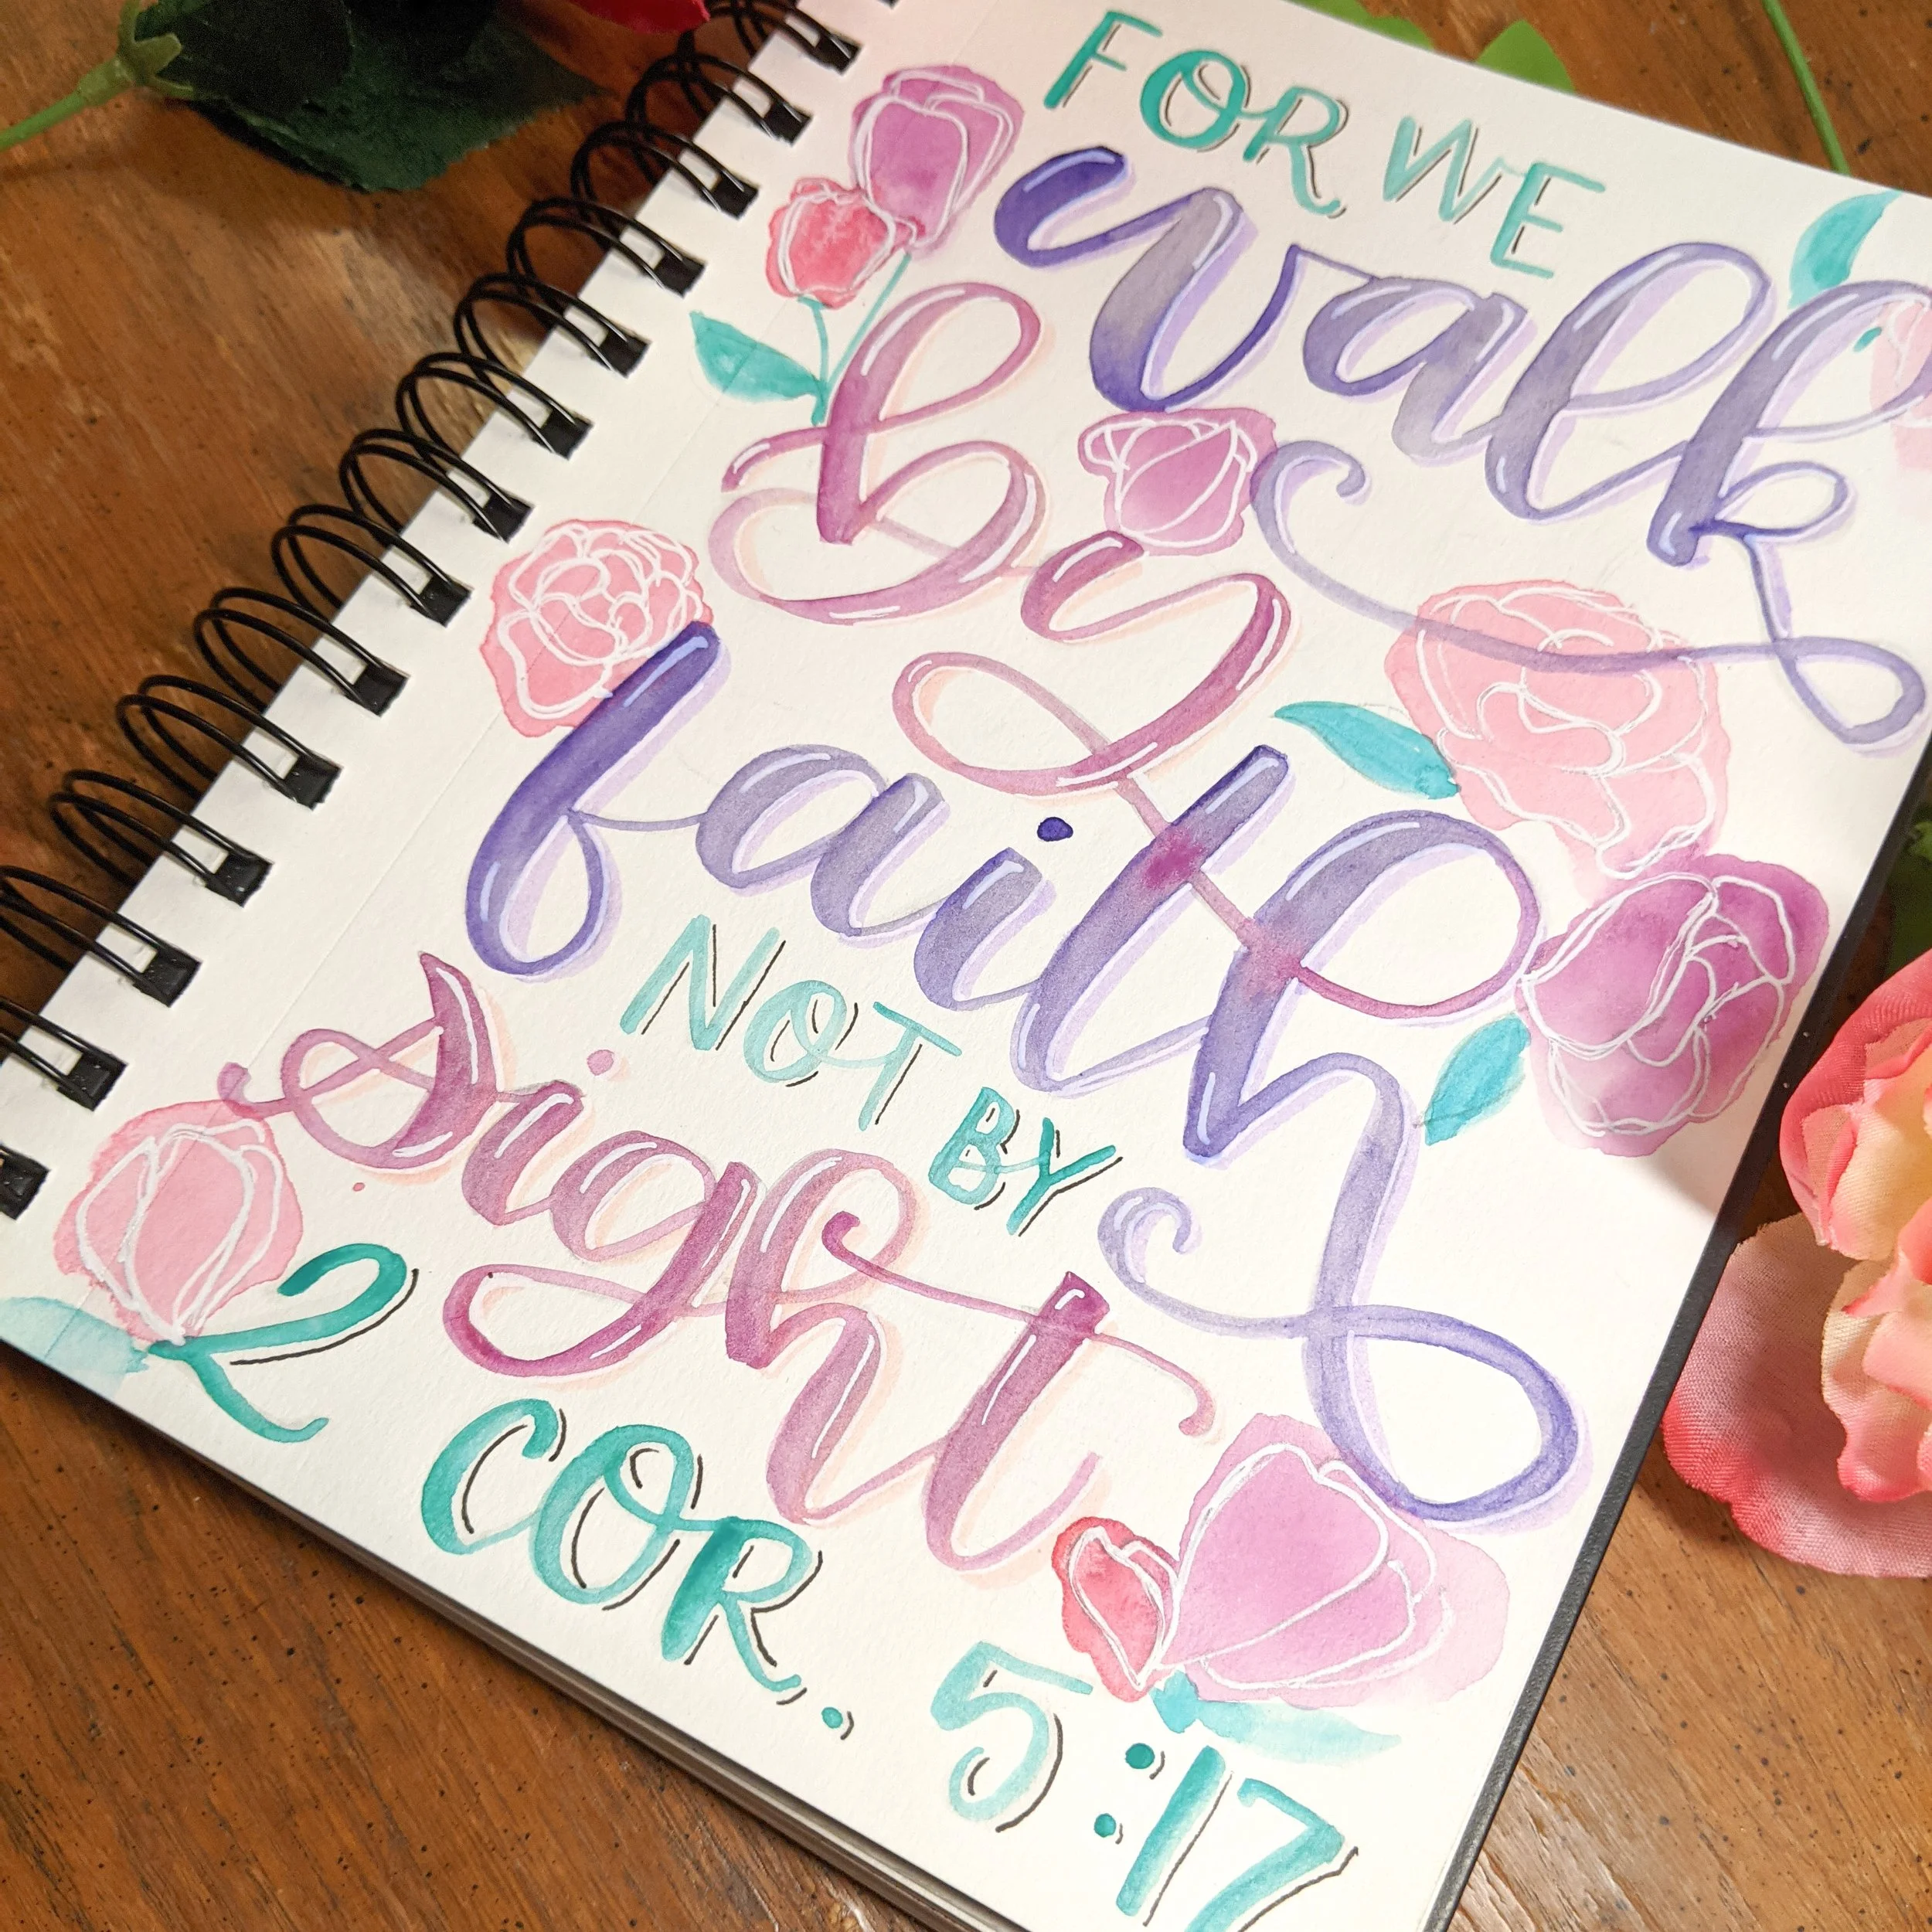 FOR WE
walk
by
faith
NOT BY
sight
2 COR. 5:17